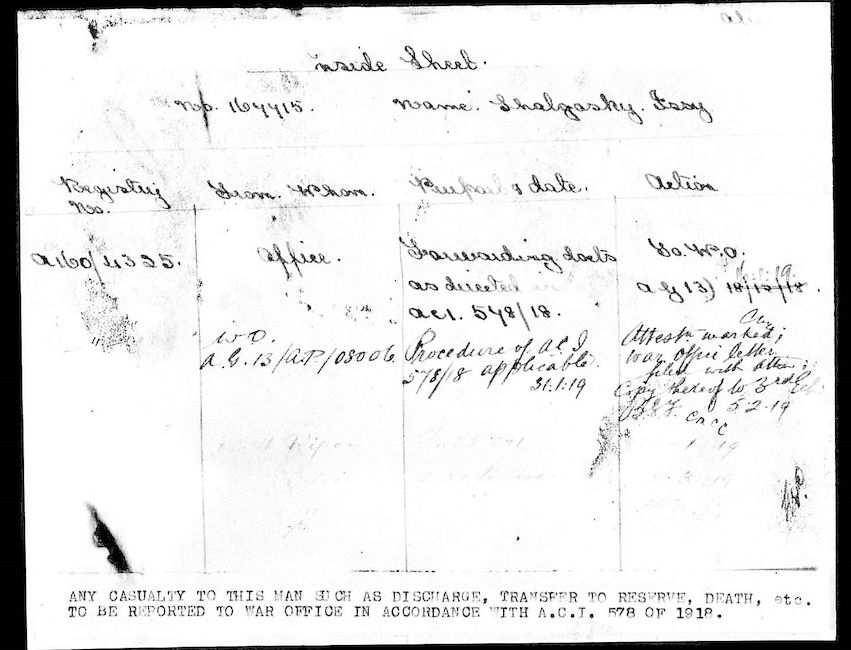 Inside Sheet.
No. 167715. Name. Shalgosky. Issy
Registry No. From Whom. Purport & date. Action
A160/4325. Office. Forwarding docts To. W.O.
as directed in A G 13) 18/12/18.
ACI. 578/18.
W O. Procedure of A C I Attestn marked;
A.G. 13/A.P/08006 578/18 applicable. War Office letter
31.1.19 filed with Attn;
Copy thereof to 3rd
5.2.19
Ripon
ANY CASUALTY TO THIS MAN SUCH AS DISCHARGE, TRANSFER TO RESERVE, DEATH, etc.
TO BE REPORTED TO WAR OFFICE IN ACCORDANCE WITH A.C.I. 578 OF 1918.